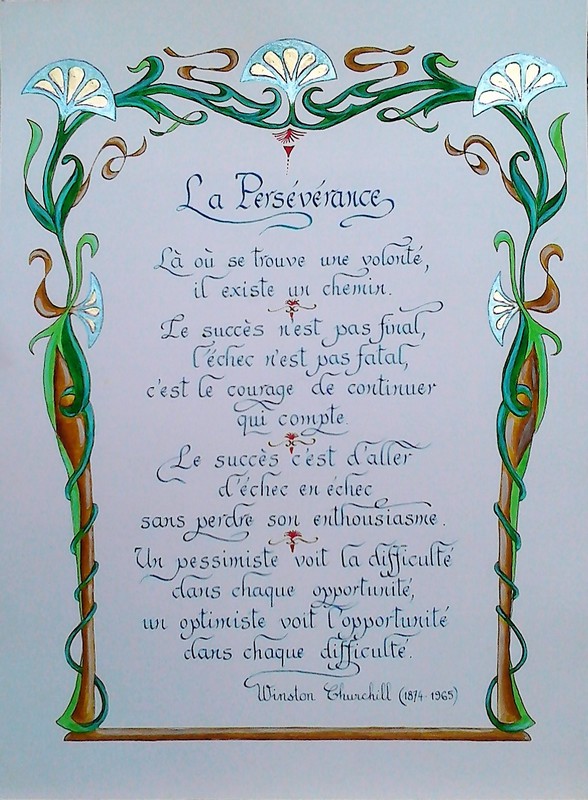 La Persévérance
Là où se trouve une volonté,
il existe un chemin.
Le succès n'est pas final,
l'échec n'est pas fatal,
c'est le courage de continuer
qui compte.
Le succès c'est d'aller
d'échec en échec
sans perdre son enthousiasme.
Un pessimiste voit la difficulté
dans chaque opportunité,
un optimiste voit l'opportunité
dans chaque difficulté.
Winston Churchill (1874-1965)